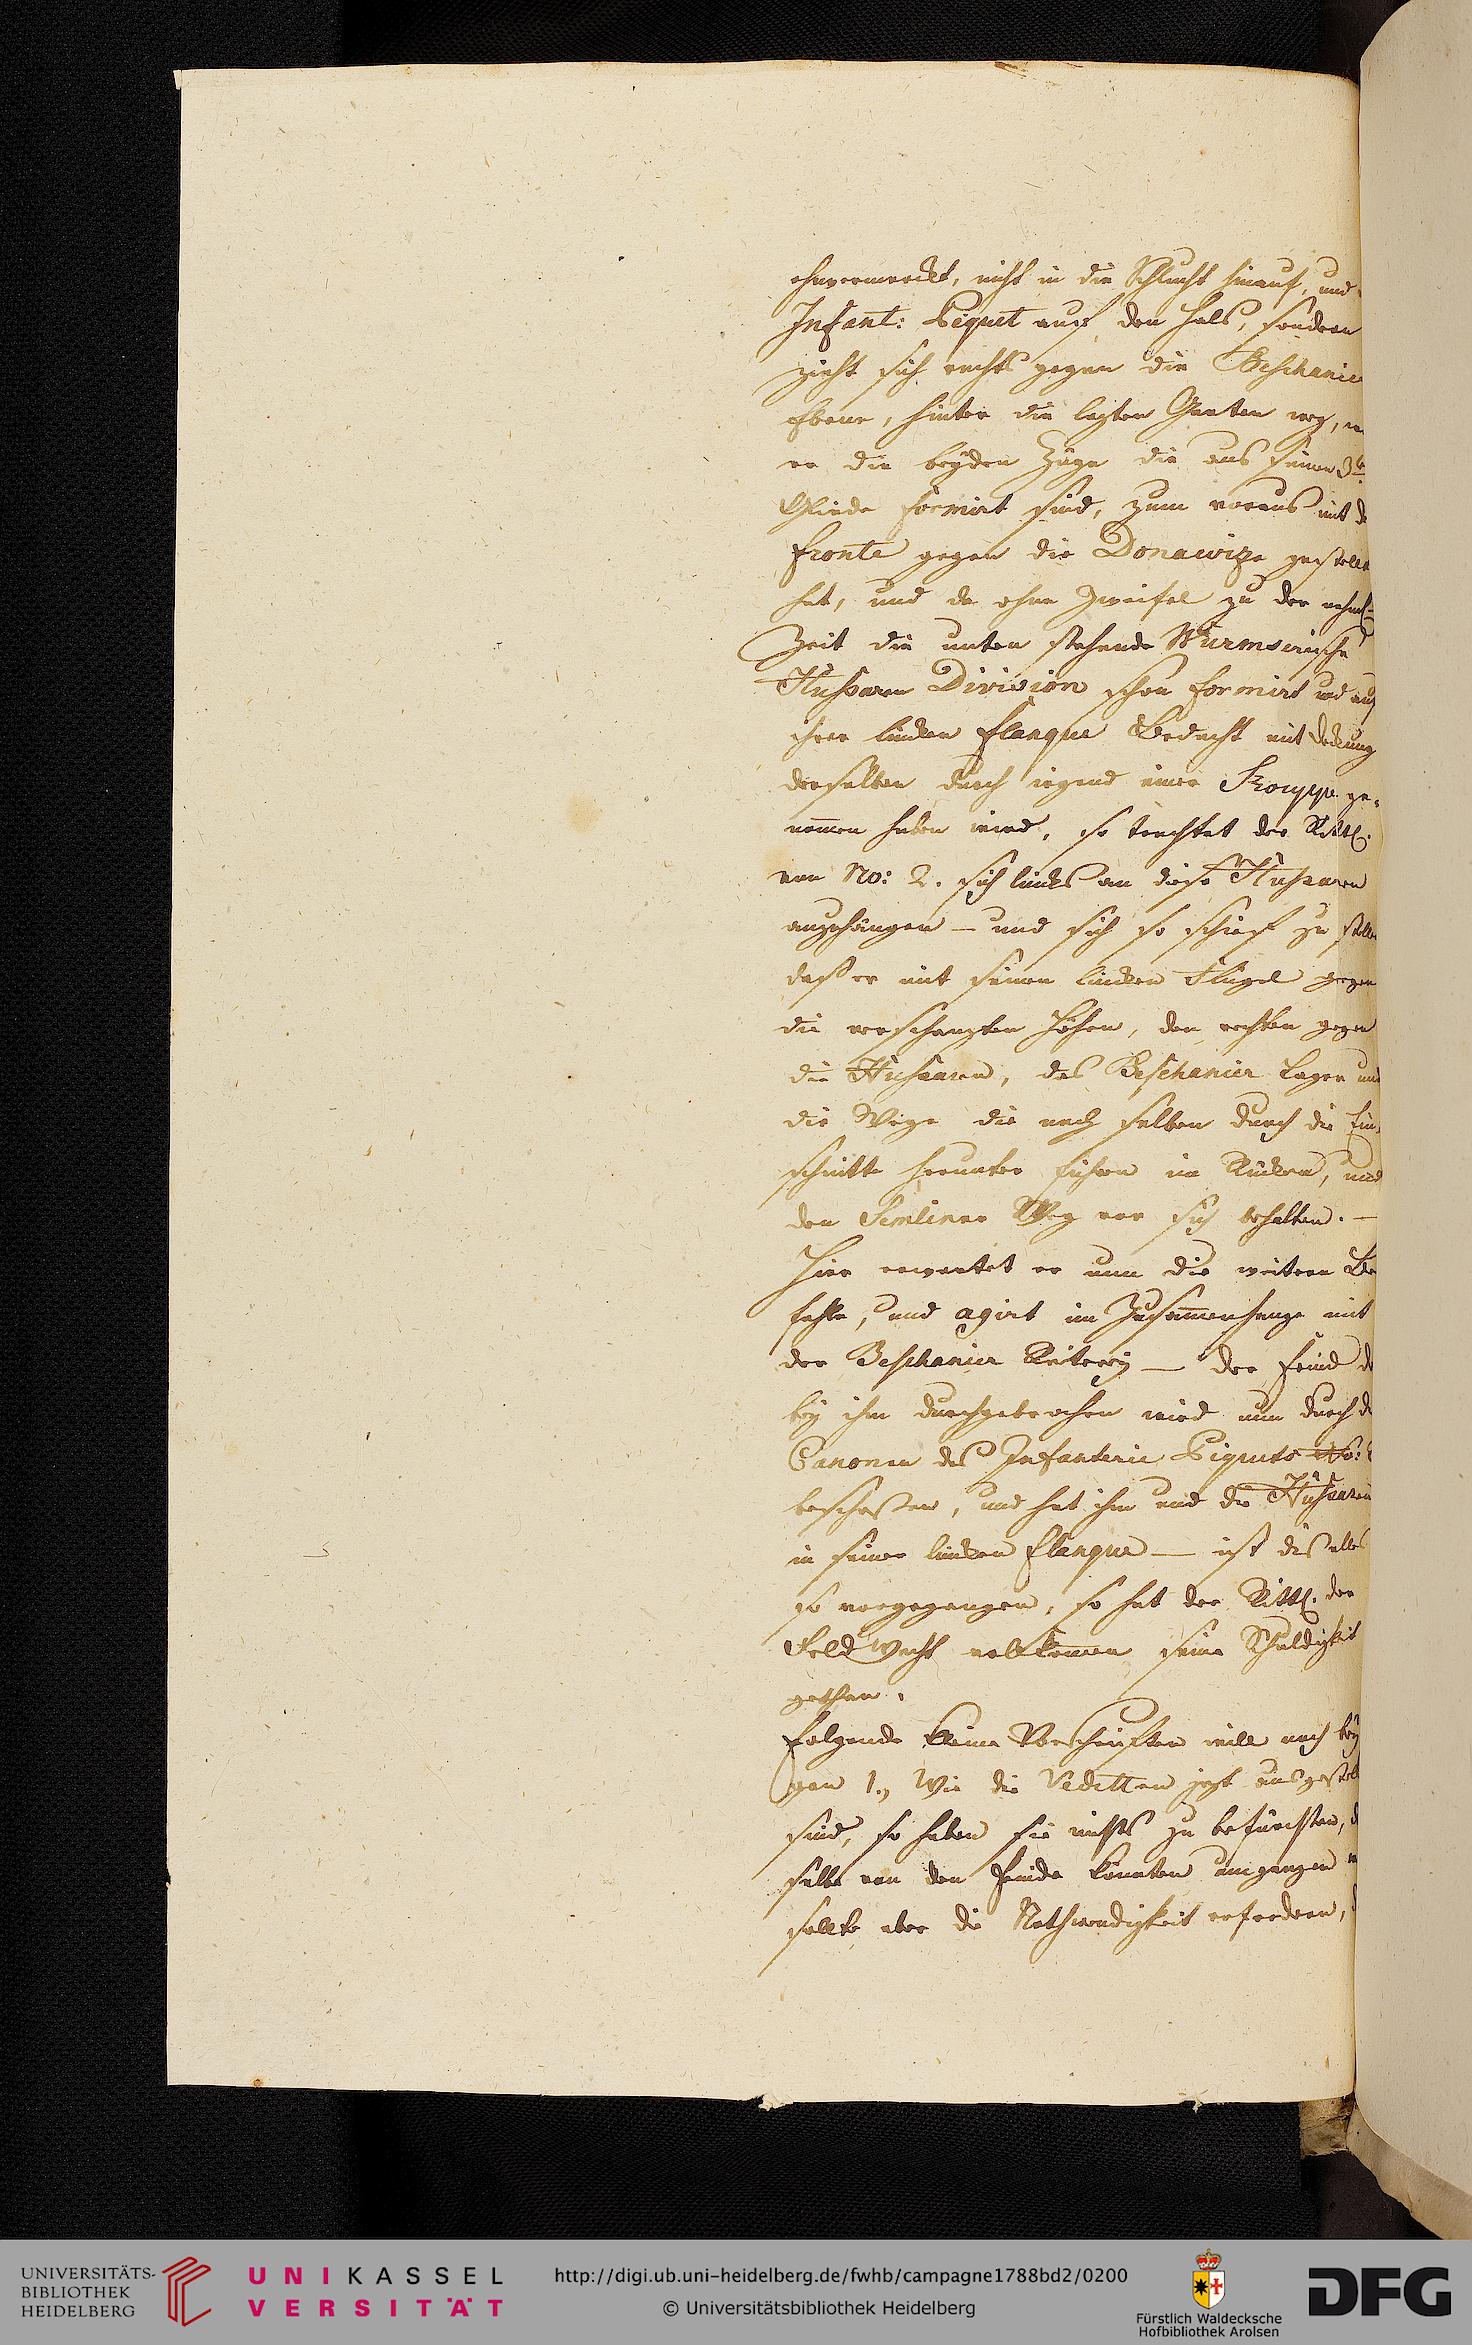 ohnvermerckt, nicht in die Schlucht hinauf, und
Infant: Piquet auf den Hals, sondern
zieht sich rechts gegen die Beschanier
Ebene, hinter die lezten Garten weg,
er die beyden Züge die aus seinen 3t
Gliede formirt sind, zum voraus mit
Fronte gegen die Donawize gestellt
hat, und da ohne Zweifel zu der nehml:
Zeit die unten stehende Wurmserische
Husaren Division schon formirt und auf
ihrer linken Flanque Bedacht mit Deckung
derselben durch irgend einer Trouppe ge-
nom̄en haben wird, so trachtet der Rittl.
von No: 2. sich links an diese Husaren
anzuhängen – und sich so schief zu stellen
daß er mit seinen linken Flügel gegen
die verschanzten Höhen, den rechten gegen
die Husaren, das Beschanier Lager und
die Wege die nach selben durch die Ein-
schnitte herunter führen im Rücken, und
den Semliner Weg vor sich behalten. –
Hier erwartet er nun die weitern Be
fehle, und agirt im Zusam̄enhange mit
der Beschanier Reiterey – der Feind
bey ihm durchgebrochen wird nun durch
Canonen des Infanterie Piquets No:
beschoßen, und hat ihm und die Husaren
in seiner linken Flanque – ist dis alles
so vorgegangen, so hat der Rittl. der
Feld Wacht vollkom̄en seine Schuldigkeit
gethan.
Folgende kleine Vorschriften will noch bey
gen 1., Wie die Vedetten jezt ausgestellt
sind, so haben sie nichts zu befürchten,
selbe von den Feinde könnten umgangen
sollte aber die Nothwendigkeit erfordern,
UNIVERSITÄTS-
BIBLIOTHEK
HEIDELBERG
UNIKASSEL
VERSITÄT
http://digi.ub.uni-heidelberg.de/fwhb/campagne1788bd2/0200
© Universitätsbibliothek Heidelberg
Fürstlich Waldecksche
Hofbibliothek Arolsen
DFG